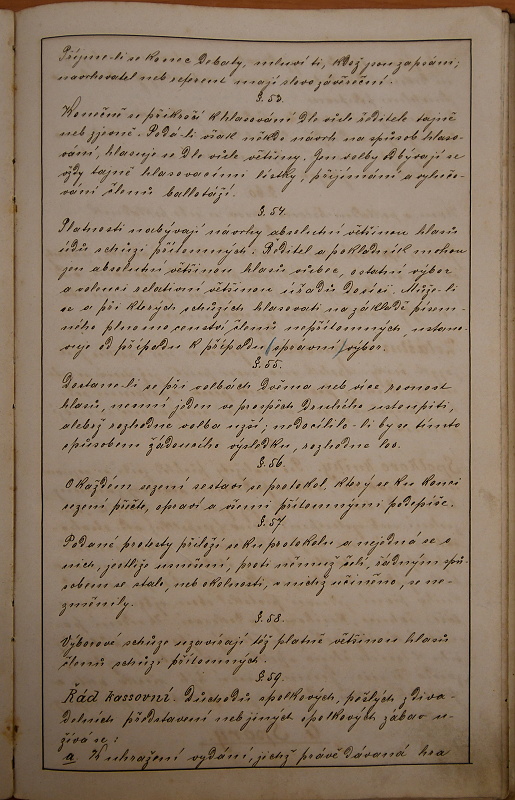 Přijme-li se konec debaty, mluví ti, kdož jsou zapsáni;
navrhovatel neb referent mají slovo závěreční.
§. 53.
Konečně se přikročí k hlasování dle vůle ředitele tajně
neb zjevně. Podá-li však někdo návrh na způsob hlaso-
vání, hlasuje se dle vůle většiny. Jen volby odbývají se
vždy tajně hlasovacími lístky, přijímání a vylučo-
vání členů ballotáží.
§. 54.
Platnosti nabývají návrhy absolutní většinou hlasů
údů schůzi přítomných. Ředitel a pokladník mohou
jen absolutní většinou hlasů vůbec, ostatní výbor
a volenci relativní většinou úřadů dojíti. Může-li
se a při kterých schůzích hlasovati na základě písem-
ného plnomocenství členů nepřítomných, ustano-
vuje od případu k případu (správní) výbor.
§. 55.
Dostane-li se při volbách dvěma neb více rovnost
hlasů, nesmí jeden ve prospěch druhého ustoupiti,
alebrž rozhodne volba užší; nedocílilo-li by se tímto
způsobem žádoucího výsledku, rozhodne los.
§. 56.
O každém sezení sestaví se protokol, který se ku konci
sezení přečte, opraví a všemi přítomnými podepíše.
§. 57.
Podané protesty přiloží se ku protokolu a nejedná se o
nich, jestliže usnešení, proti němuž čelí, řádným způ-
sobem se stalo, neb okolnosti, z nichž učiněno, se ne-
změnily.
§. 58.
Výborové schůze uzavírají též platně většinou hlasů
členů schůzi přítomných.
§. 59.
Řád kassovní. Důchodů spolkových, pošlých z diva-
delních představení neb jiných spolkových zábav u-
žívá se:
a K uhražení vydání, jichž právě dávaná hra